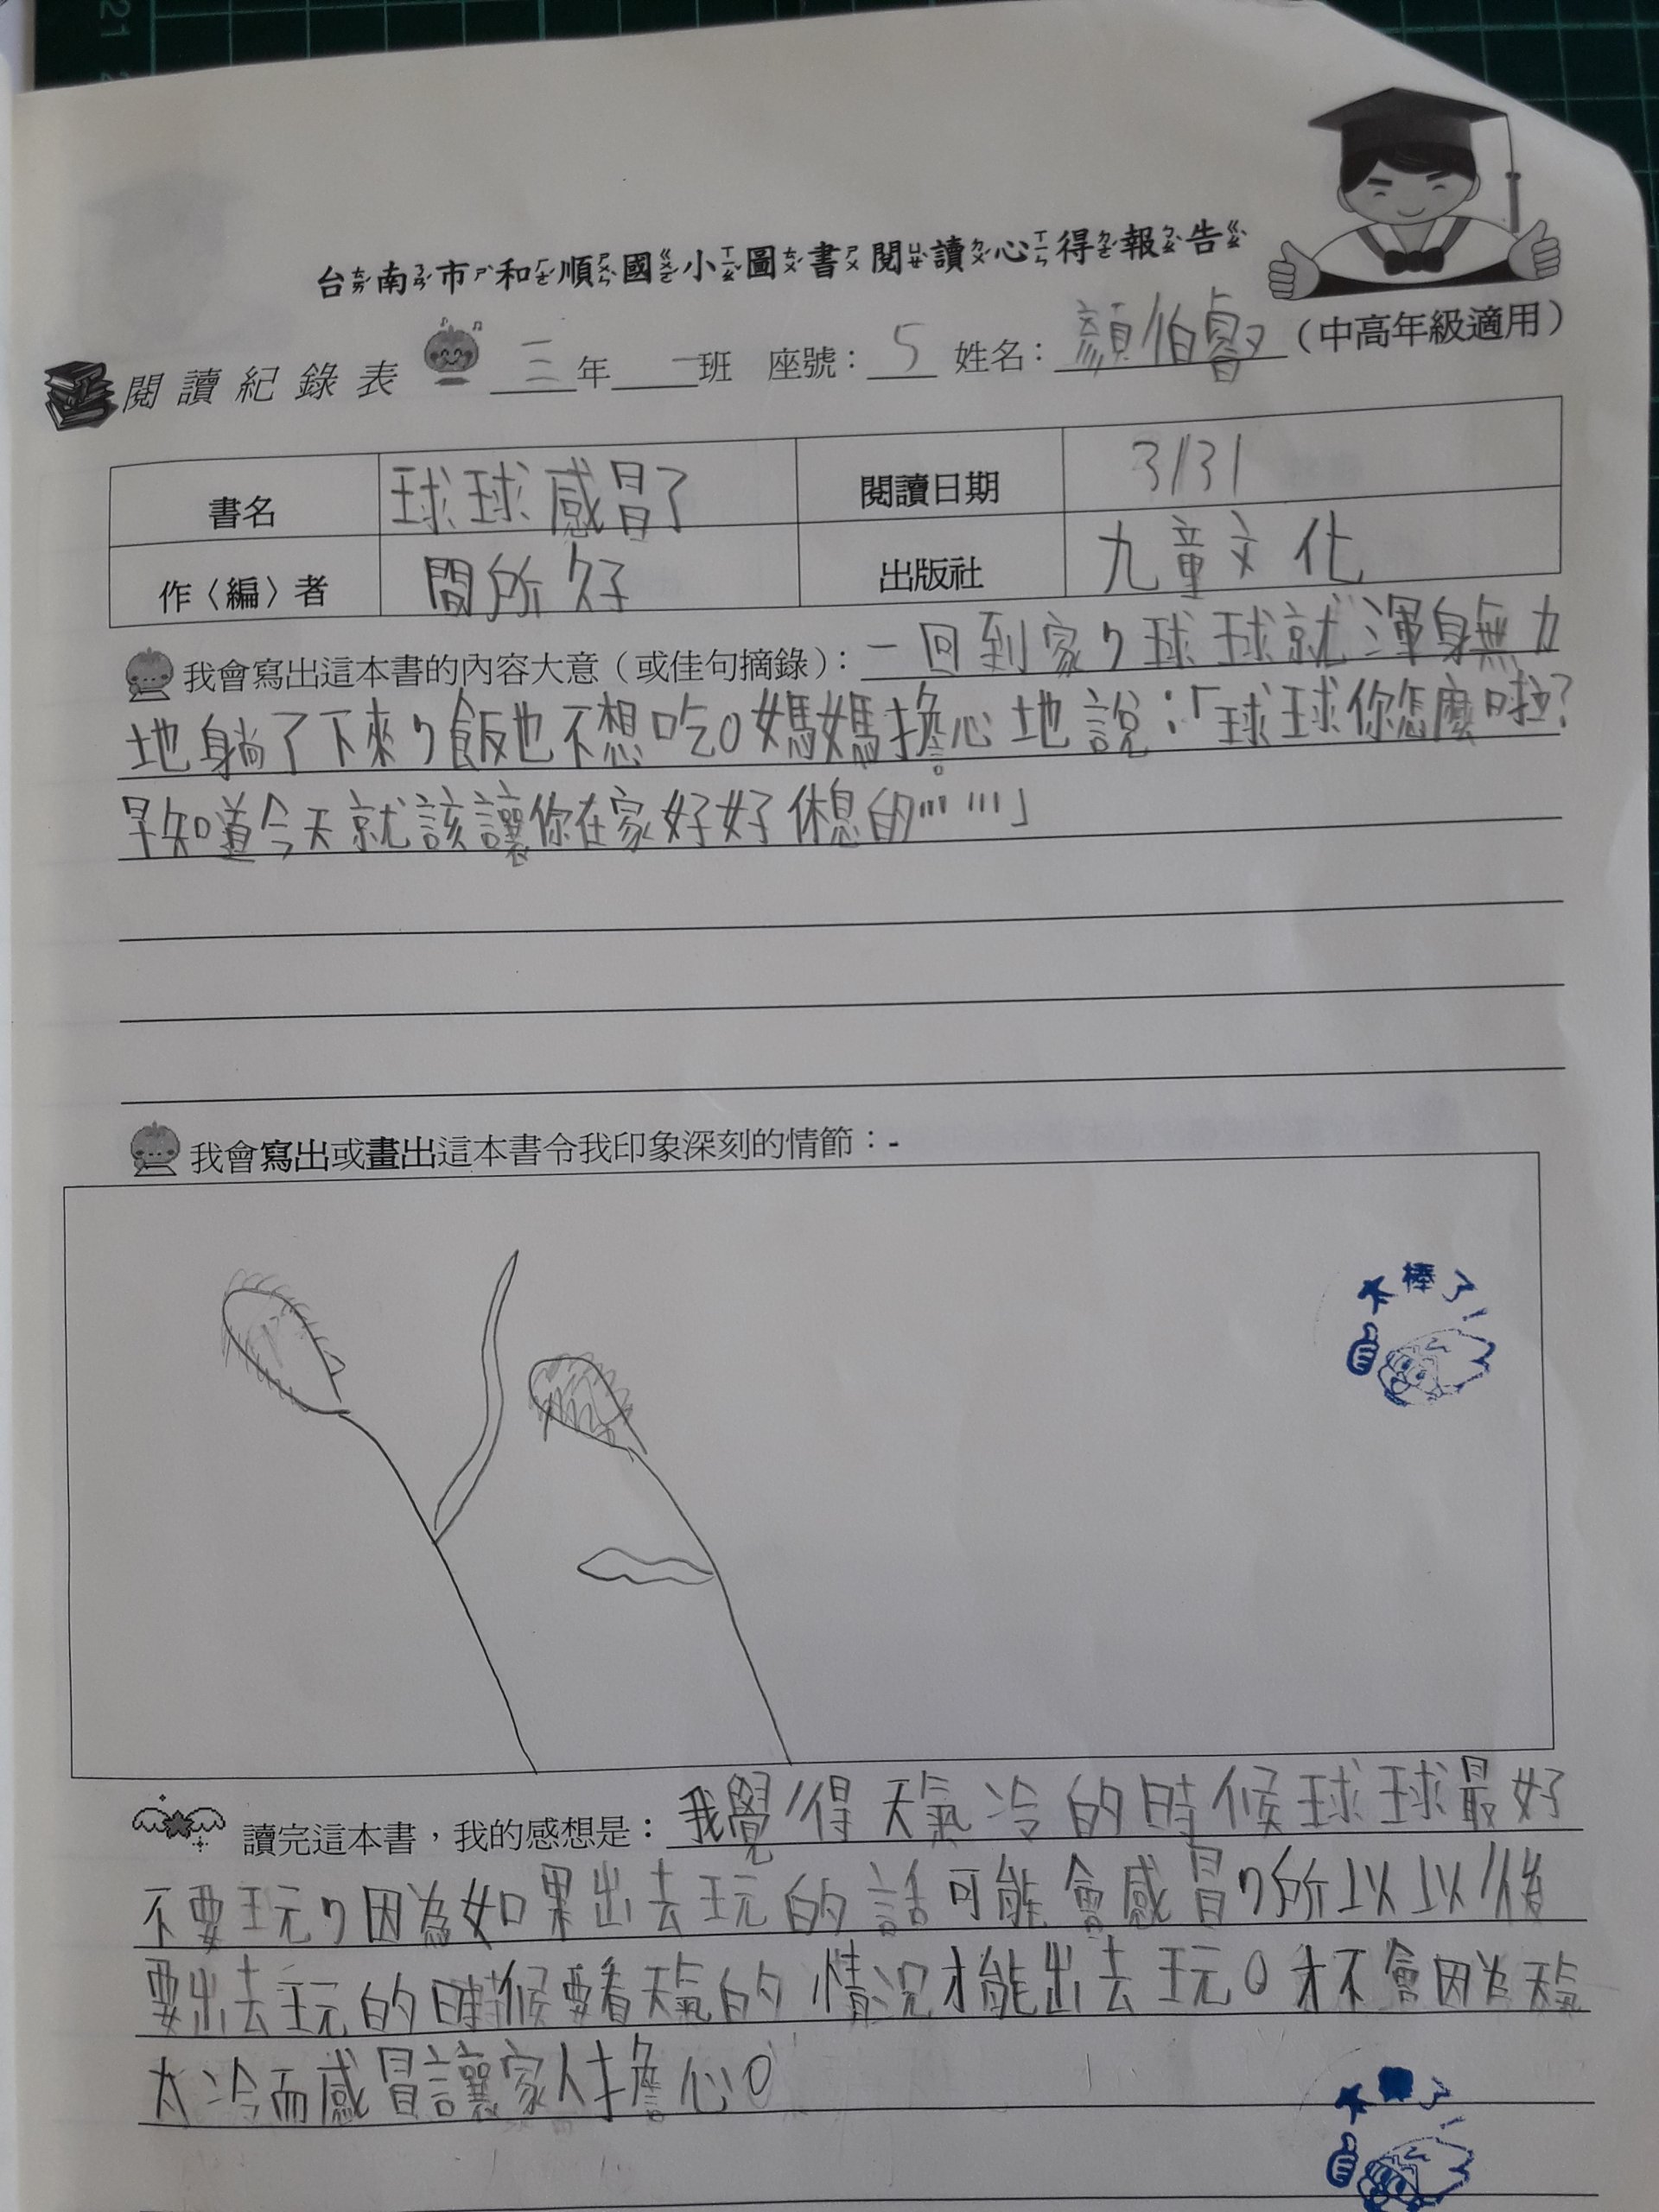 台南市和順國小圖書閱讀心得報告
閱讀紀錄表 三年一班 座號：5 姓名：顏伯睿（中高年級適用）
書名 球球感冒了 閱讀日期 3/31
作〈編〉者 間所久子 出版社 九童文化
我會寫出這本書的內容大意（或佳句摘錄）：一回到家，球球就渾身無力
地躺了下來，飯也不想吃。媽媽擔心地說：「球球你怎麼啦？
早知道今天就該讓你在家好好休息的……」
我會寫出或畫出這本書令我印象深刻的情節：-
太棒了！
讀完這本書，我的感想是：我覺得天氣冷的時候球球最好
不要玩，因為如果出去玩的話可能會感冒，所以以後
要出去玩的時候要看天氣的情況才能出去玩。才不會因為天氣
太冷而感冒讓家人擔心。
太棒了！